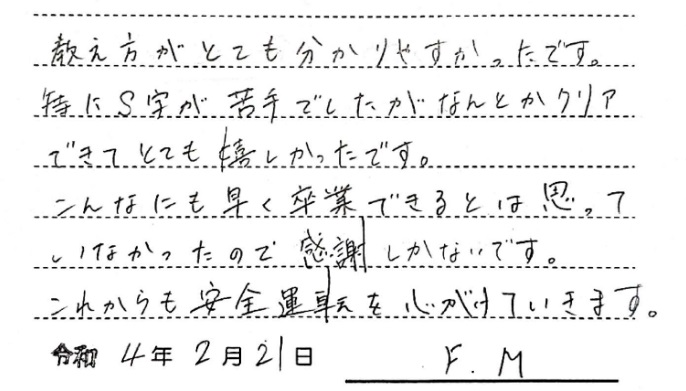 教え方がとても分かりやすかったです。
特にS字が苦手でしたがなんとかクリア
できてとても嬉しかったです。
こんなにも早く卒業できるとは思って
いなかったので感謝しかないです。
これからも安全運転を心がけていきます。
令和 4年 2月 21日 F. M